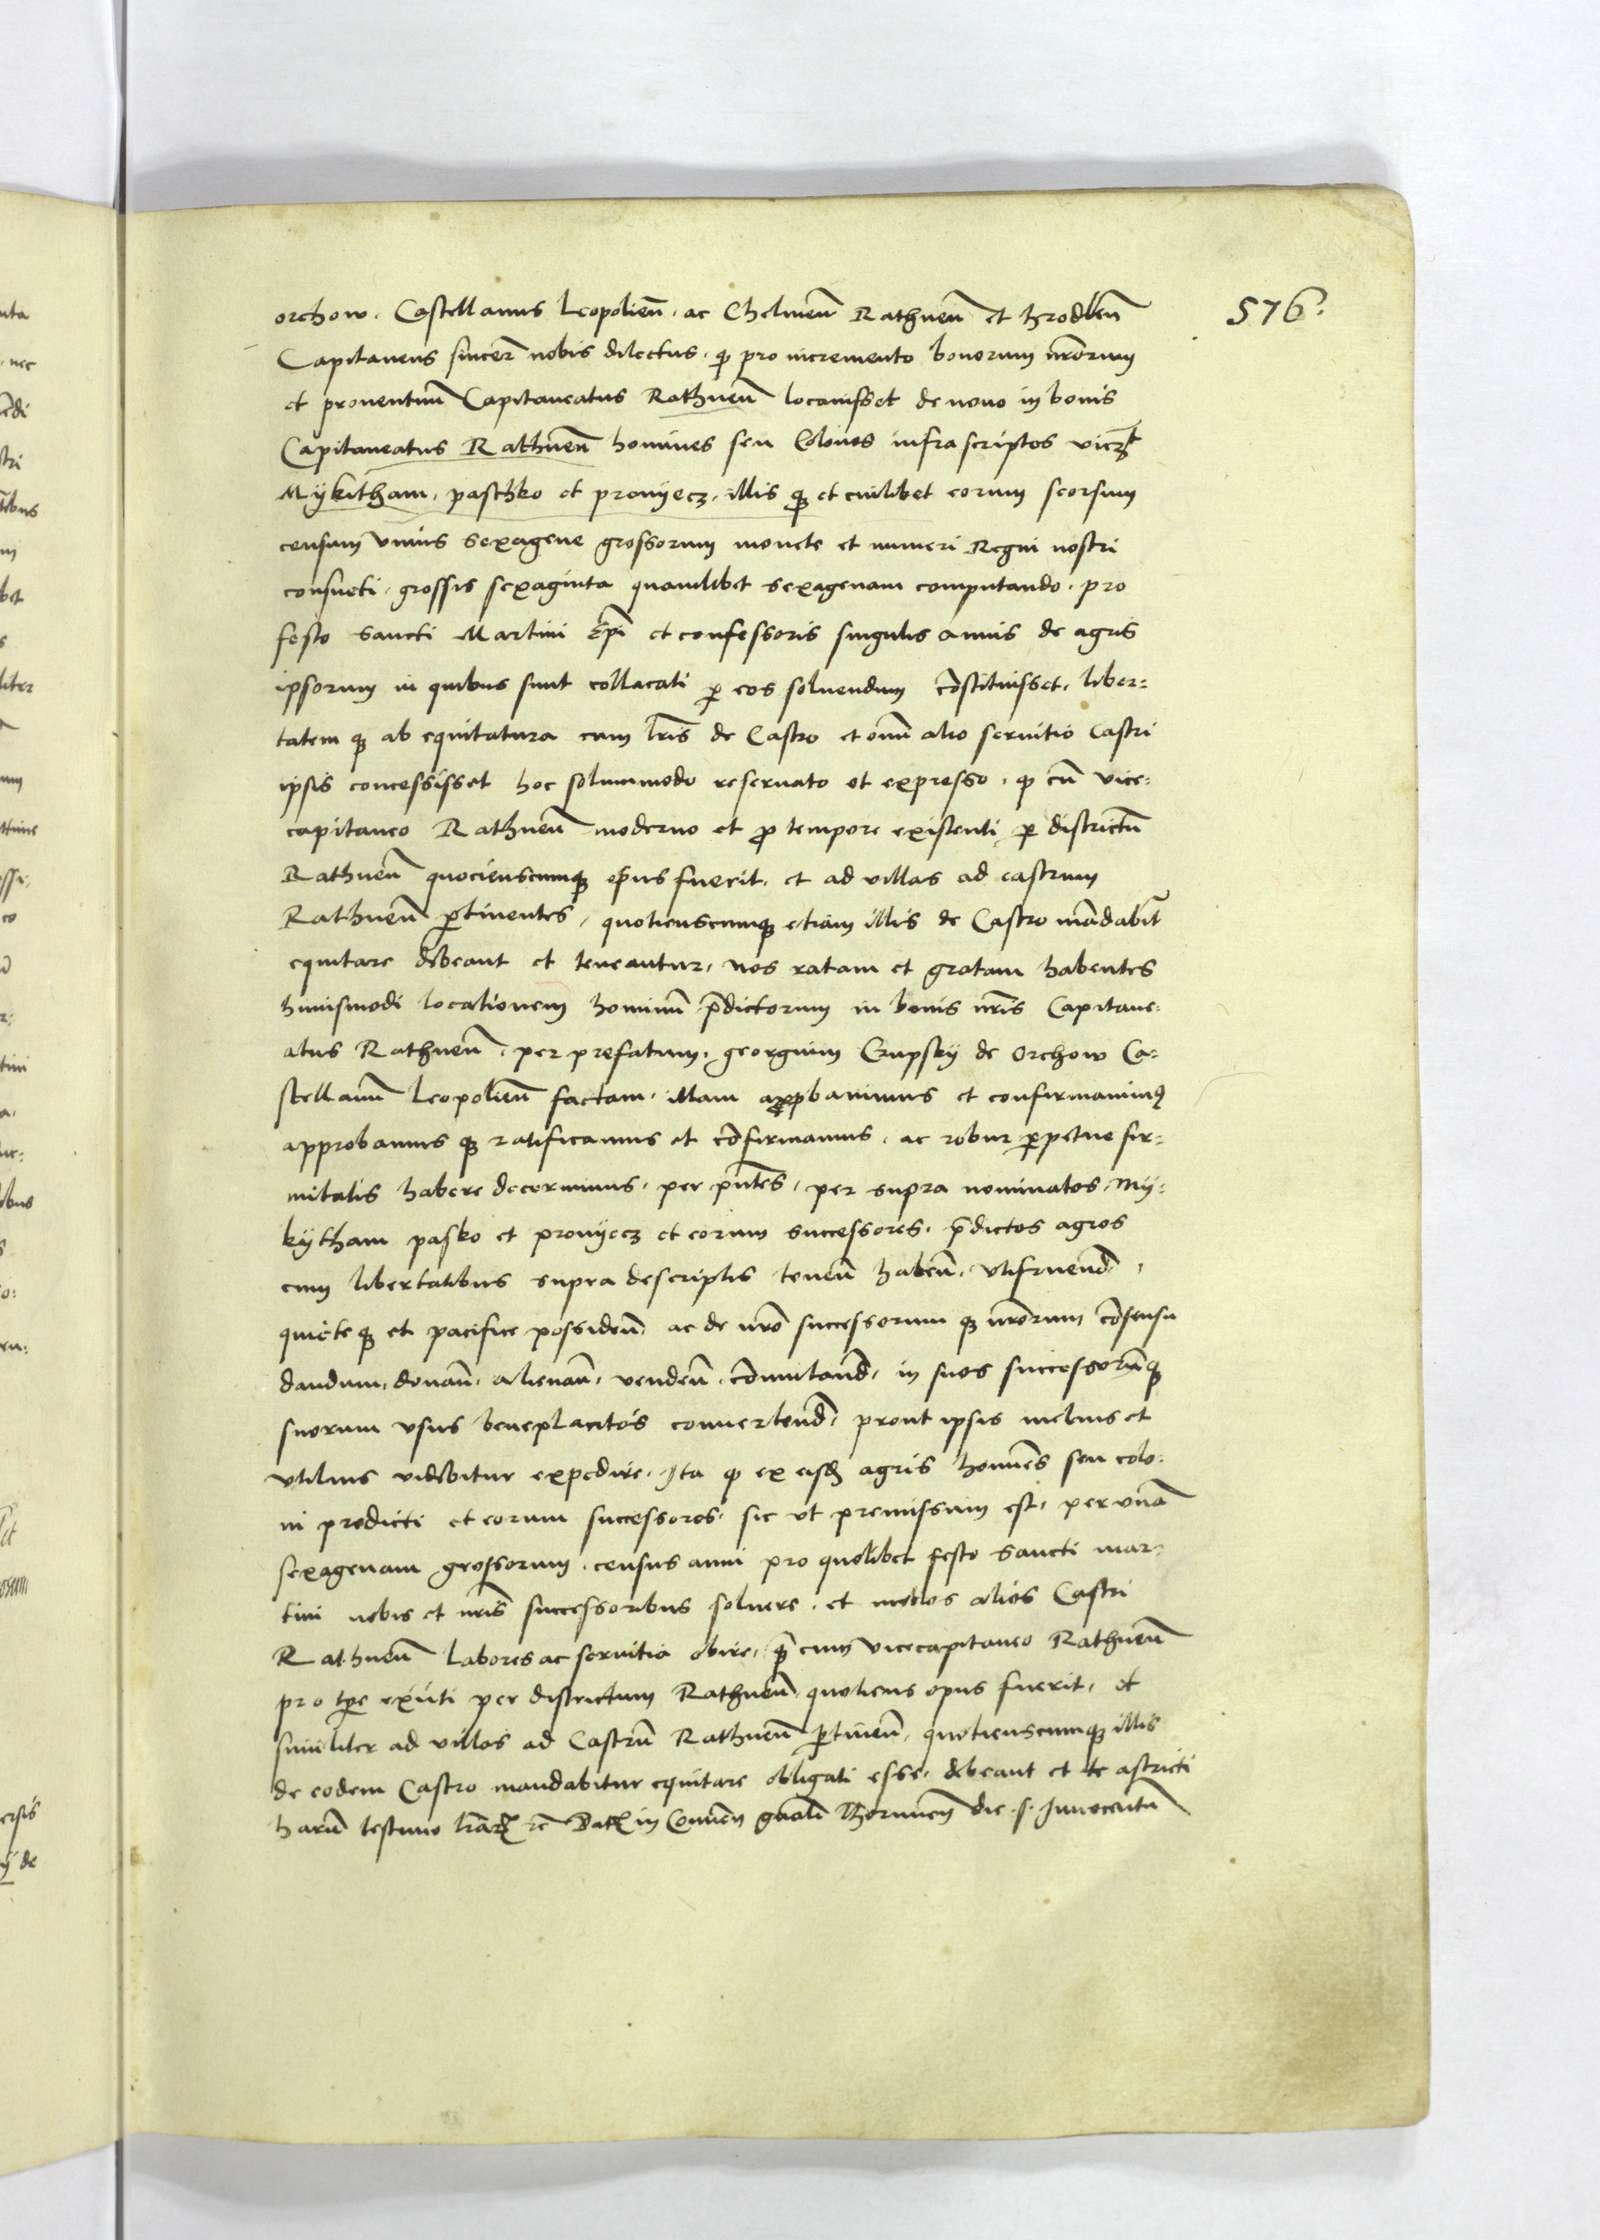 576.
orchow. Castellanus Leopolień. ac Chelmeń Rathneń et hrodleń
Capitaneus sincer̄ nobis dilectus. qꝫ pro incremento bonorum nr̄orum
et prouentuum Capitaneatus Rathneń locauisset de nouo in bonis
Capitaneatus Rathneń homines seu Colonos infrascriptos vicꝫ
Mykitham. paschko et pronyecz. illis qꝫ et cuilibet eorum seorsum
censum vnius sexagene grossorum monete et numeri Regni nostri
consueti. grossis sexaginta quamlibet sexagenam computando. pro
festo sancti Martini Ep̄i et confessoris singulis annis de agris
ipsorum in quibus sunt collacati ꝑ eos soluendum cōstituisset. liber=
tatem qꝫ ab equitatura cum lr̄is de Castro et om̄i alio seruitio Castri
ipsis concessisset hoc solummodo reseruato et expresso. qꝫ cū vice=
capitaneo Rathneń moderno et ꝓ tempore existenti ꝑ districtū
Rathneń quocienscumqꝫ opus fuerit. et ad villas ad castrum
Rathneń ꝑtinentes. quotienscumqꝫ etiam illis de Castro mādabit̄
equitare debeant et teneantur. nos ratam et gratam habentes
huiusmodi locationem hominū p̄dictorum in bonis nr̄is Capitane=
atus Rathneń. per prefatum. georgium Crupsky de Orchow Ca=
stellanū Leopolień factam. illam approbauimus et confirmauimꝰ
approbamus qꝫ ratificamus et cōfirmamus. ac robur ꝑpetue fir=
mitatis habere decernimus. per p̄ntes. per supra nominatos. My=
kytham pasko et pronyecz et eorum successores. p̄dictos agros
cum libertatibus supra descriptis teneń habeń. vtifruend̄.
quiete qꝫ et pacifice possideń. ac de nr̄o successorum qꝫ nr̄orum cōsensu
dandum. donań. alienań. vendeń. cōmutand̄. in suos successorūqꝫ
suorum vsus beneplacitos conuertend̄. prout ipsis melius et
vtilius videbitur expedire. Ita qꝫ ex eisd̄ agris homines seu colo=
ni predicti et eorum successores. sic vt premissum est. per vnā
sexagenam grossorum. census anni pro quolibet festo sancti mar=
tini nobis et nr̄is successoribus soluere. et nullos alios Castri
Rathneń labores ac seruitia obire. cum vicecapitaneo Rathneń
pro tp̄e exn̄ti per districtum Rathneń quotiens opus fuerit. et
similiter ad villas ad Castrū Rathneń ꝑtineń. quotienscumqꝫ illis
de eodem Castro mandabitur equitare obligati esse. debeant et te astricti
harū testimo lr̄arꝝ ꝛc̄ Datꝫ in Conuen̄ gn̄ali Thorunień die. s. Innocentū